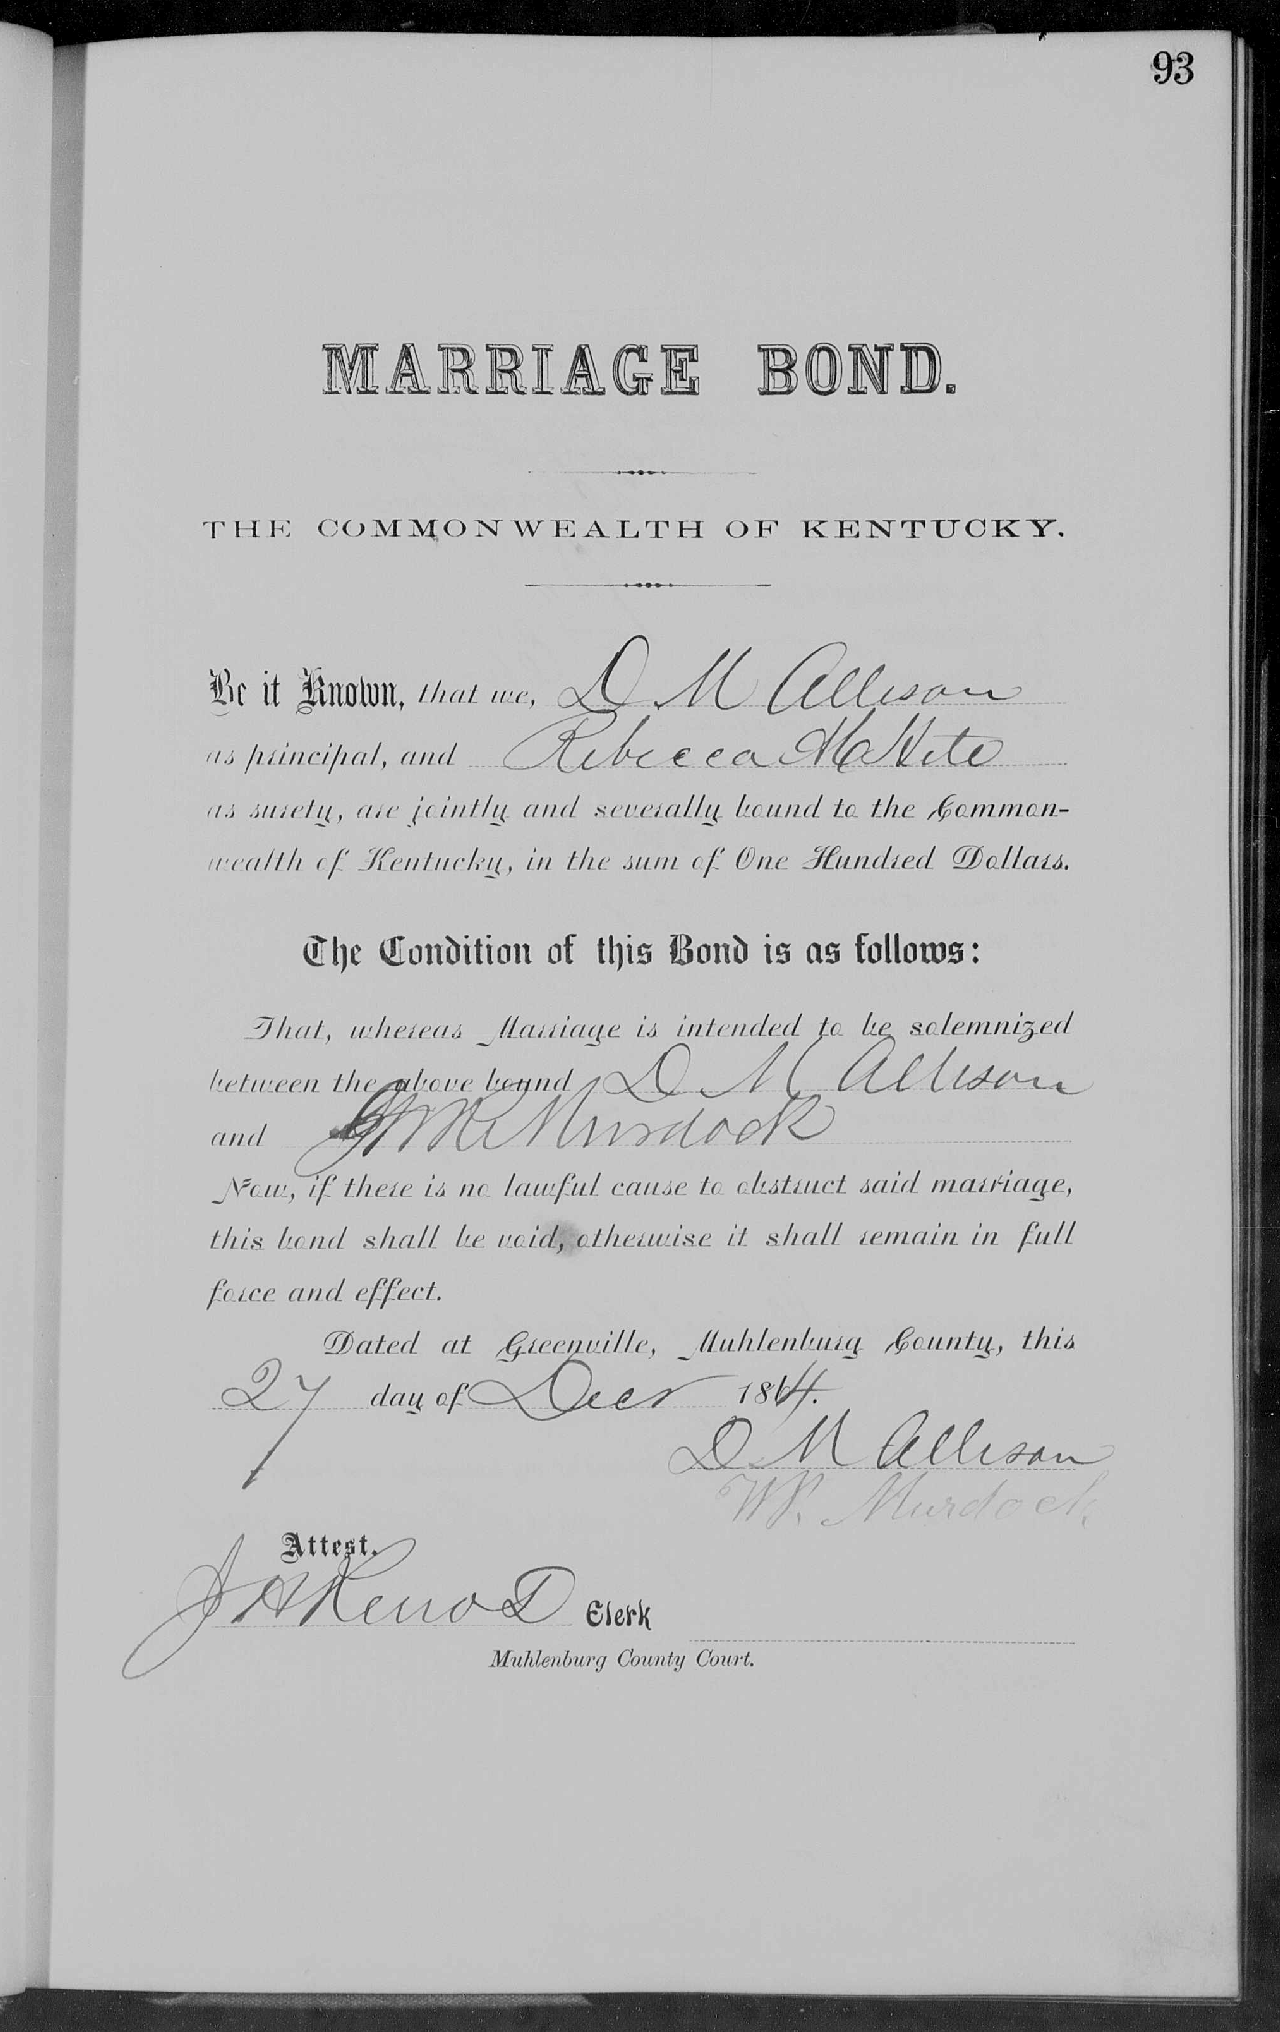 93
MARRIAGE BOND.
THE COMMONWEALTH OF KENTUCKY.
Be it Known, that we, D M Allison
as principal, and Rebecca
as surety, are jointly and severally bound to the Common-
wealth of Kentucky, in the sum of One Hundred Dollars.
The Condition of this Bond is as follows:
That, whereas Marriage is intended to be solemnized
between the above bound D M Allison
and Murdock
Now, if there is no lawful cause to obstruct said marriage,
this bond shall be void, otherwise it shall remain in full
force and effect.
Dated at Greenville, Muhlenburg County, this
27 day of Decr 18
D M Allison
Murdock
Attest.
J A Reno D Clerk
Muhlenburg County Court.